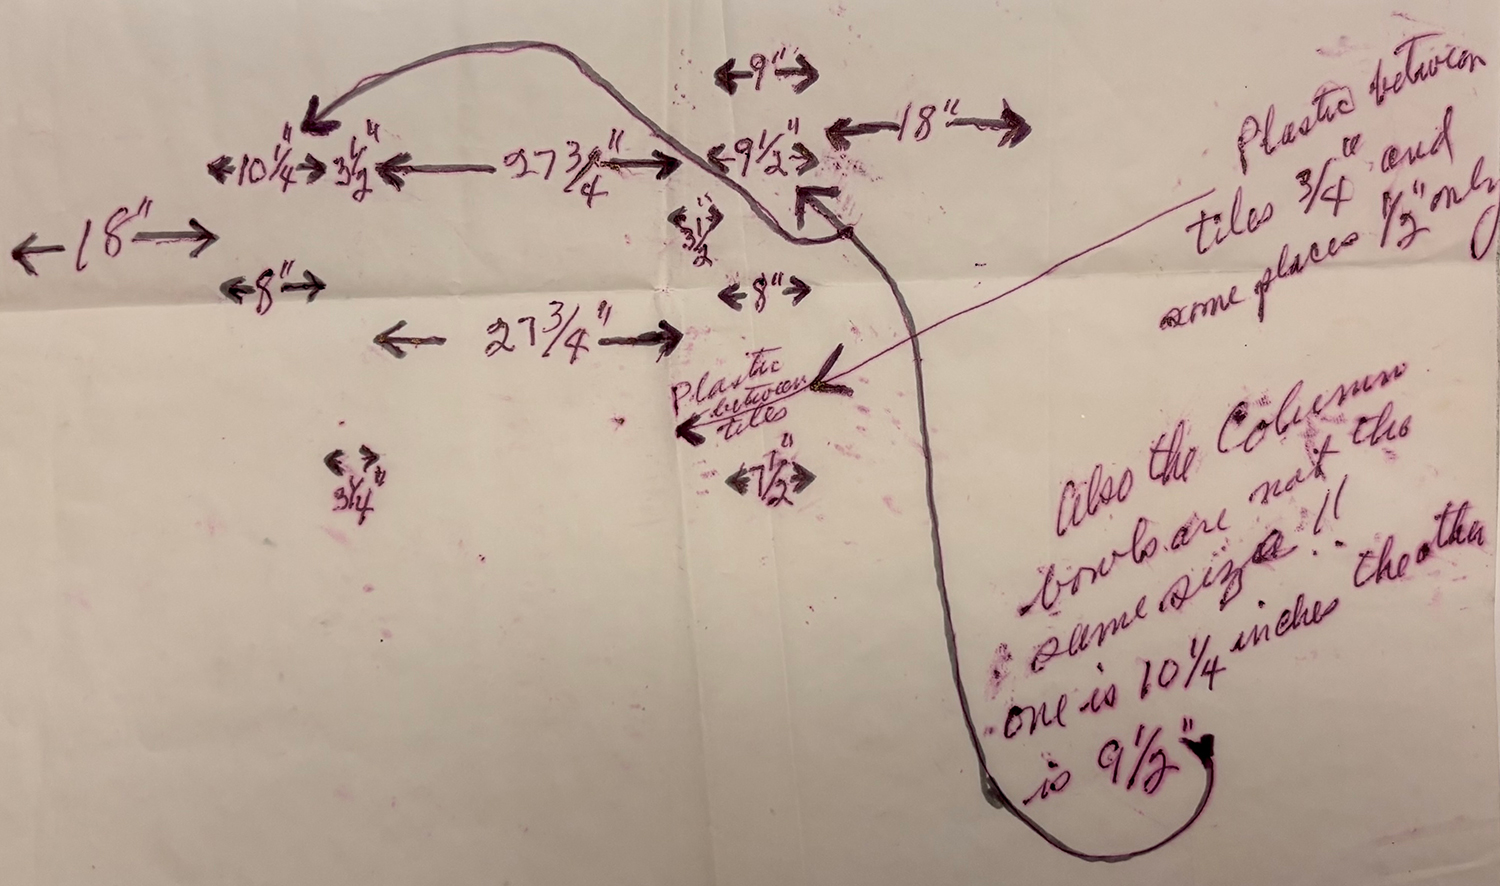 9"
18"
10 1/4" 3 1/2" 27 3/4" 9 1/2"
18"
3 1/2
8"
8"
27 3/4"
Plastic
between
tiles
7 1/2"
3 1/4"
Plastic between
tiles 3/4" and
some places 1/2" only
Also the Column
bowls are not the
same size!!
one is 10 1/4 inches the other
is 9 1/2"